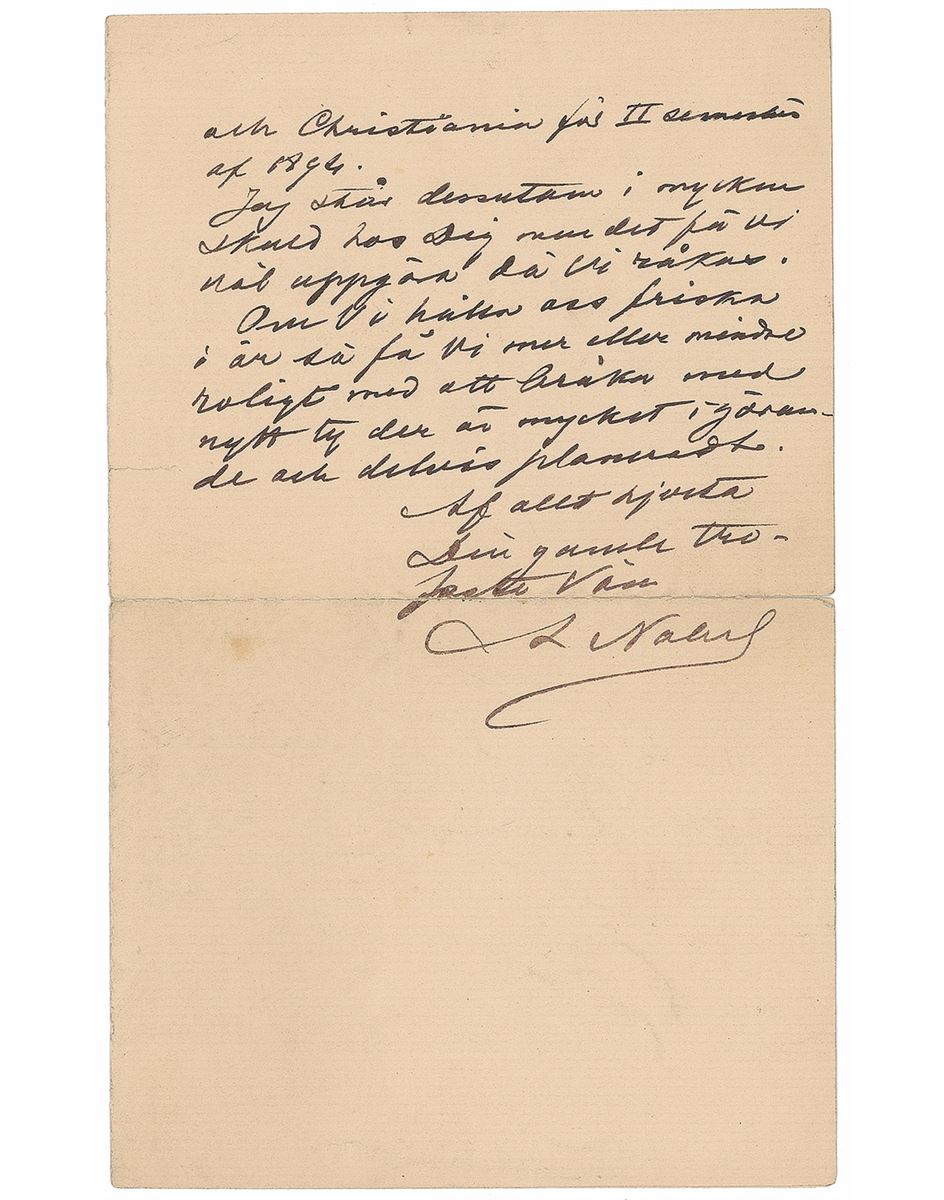 och Christiania för II semestern
af 1894.
Jag står dessutom i mycken
skuld hos Dig men det få vi
väl uppgöra då vi råkas.
Om Vi hålla oss friska
i år så få Vi mer eller mindre
roligt med att bråka med
nytt ty der är mycket i göran-
de och delvis planeradt.
Af allt hjerta
Din gamle tro-
faste Vän
A Nobel